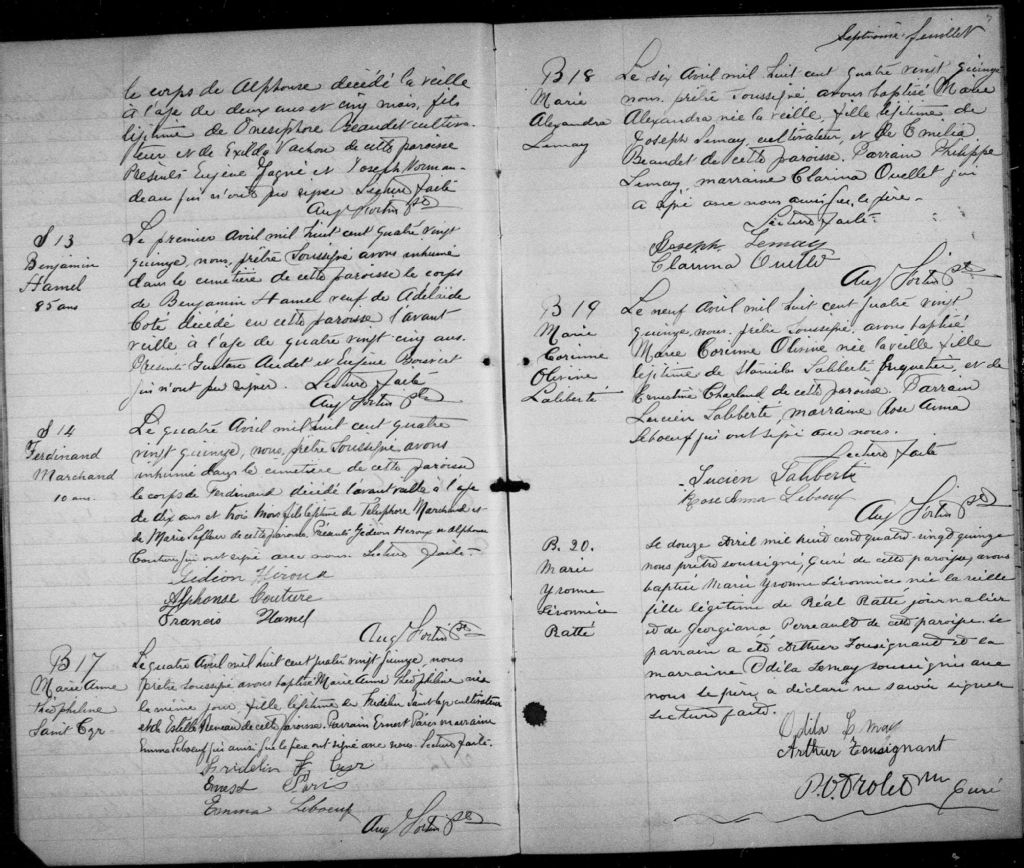 le corps de Alphonse décédé la veille
à l'age de deux ans et cinq mois, fils
légitime de Onesiphore Beaudet cultiva-
teur et de Exilda Vachon de cette paroisse
Presents Eugène Gagné et Joseph Norman-
deau qui n'ont pu signer Lecture faite
Aug Fortin ptre
S 13
Benjamin
Hamel
85 ans
Le premier Avril mil huit cent quatre vingt
quinze, nous, prêtre soussigné avons inhumé
dans le cimetière de cette paroisse le corps
de Benjamin Hamel veuf de Adelaïde
Coté décédé en cette paroisse l'avant
veille à l'age de quatre vingt cinq ans.
Présents Gustave Audet et Eugène
qui n'ont pu signer. Lecture faite
Aug Fortin ptre
S 14
Ferdinand
Marchand
10 ans.
Le quatre Avril mil huit cent quatre
vingt quinze, nous, prêtre soussigné avons
inhumé dans le cimetière de cette paroisse
le corps de Ferdinand décédé l'avant veille à l'age
de dix ans et trois mois fils légitime de Télesphore Marchand et
de Marie Lafleur de cette paroisse. Présents Gédéon Heroux et Alphonse
Couture qui ont signé avec nous. Lecture faite.
Gidéon Héroux
Alphonse Couture
Francis Hamel
Aug Fortin ptre
B 17
Marie Anne
théophiline
Saint Cyr
Le quatre Avril mil huit cent quatre vingt quinze, nous
prêtre soussigné avons baptisé Marie Anne théophiline née
le même jour fille légitime de Fridelin Saint Cyr cultivateur
et de Estelle de cette paroisse. Parrain Ernest Paris marraine
Emma Leboeuf qui ainsi que le père ont signé avec nous. Lecture faite.
Fridelin St Cyr
Ernest Paris
Emma Leboeuf
Aug Fortin ptre
Septième feuillet
B 18
Marie
Alexandra
Lemay
Le six Avril mil huit cent quatre vingt quinze
nous, prêtre soussigné avons baptisé Marie
Alexandra née la veille, fille légitime de
Joseph Lemay, cultivateur, et de Emélia
Beaudet de cette paroisse. Parrain Philippe
Lemay, marraine Clarina Ouellet qui
a signé avec nous ainsi que le père.-
Lecture faite-
Joseph Lemay
Clarina Ouellet
Aug Fortin ptre
B 19
Marie
Corinne
Olivine
Laliberté
Le neuf Avril mil huit cent quatre vingt
quinze, nous, prêtre soussigné, avons baptisé
Marie Corinne Olivine née la veille fille
légitime de Stanislas Laliberté briquetier, et de
Ernestine Charland de cette paroisse. Parrain
Lucien Laliberté, marraine Rose Anna
Leboeuf qui ont signé avec nous.
Lecture faite
Lucien Laliberté
Rose Anna Leboeuf
Aug Fortin ptre
B. 20.
Marie
Yvonne
Léronnice
Ratté
Le douze Avril mil huit cent quatre vingt quinze
nous prêtre soussigné, Curé de cette paroisse, avons
baptisé Marie Yvonne Léronnice née la veille
fille légitime de Réal Ratté journalier
et de Georgiana Perreault de cette paroisse. Le
parrain a été Arthur Tousignand et la
marraine Odila Lemay soussignés avec
nous le père a déclaré ne savoir signer
Lecture faite.
Odila Lemay
Arthur Tousignant
P. O. Drolet ptre
Curé